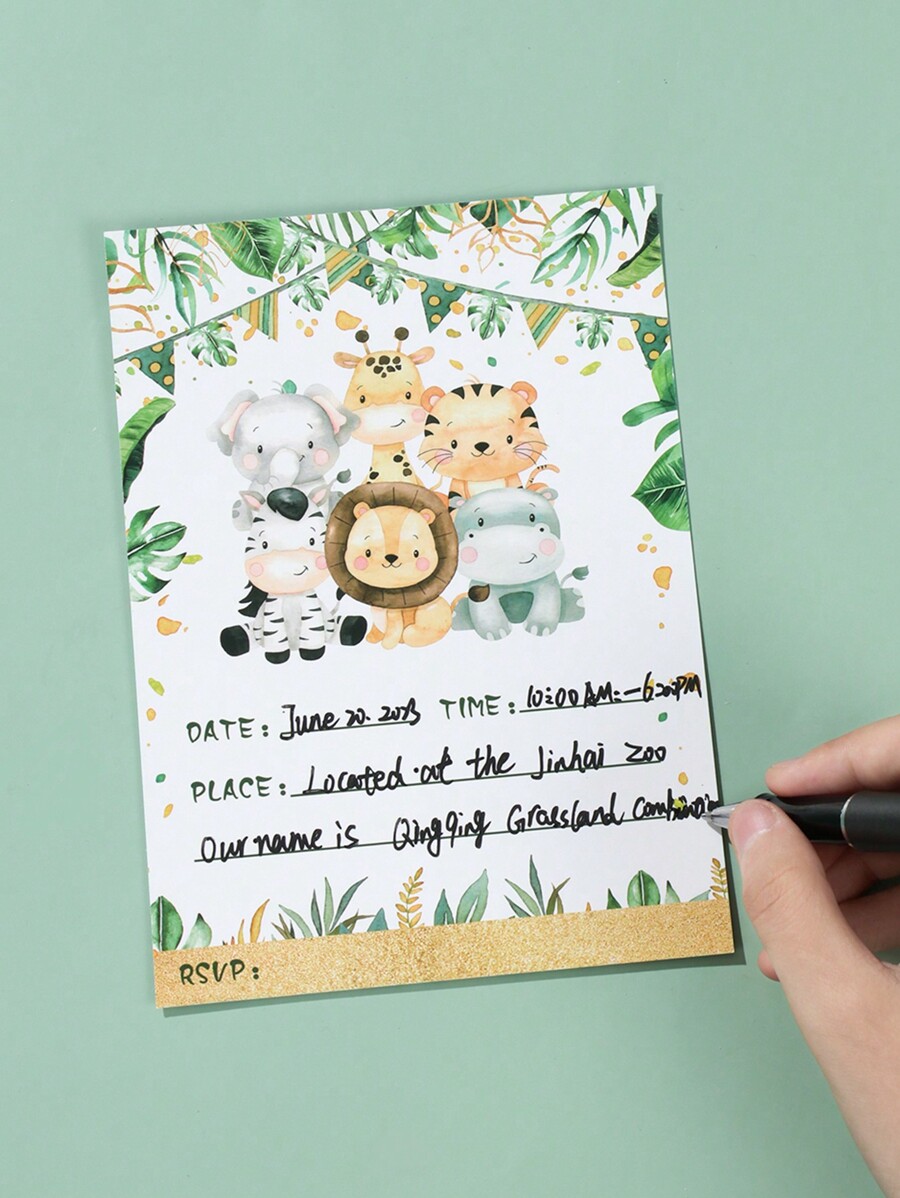 DATE: June 20. 2023 TIME: 10:00 AM:-6:00PM
PLACE: Located at the Jinhai Zoo
Our name is Qingqing Grassland
RSVP: